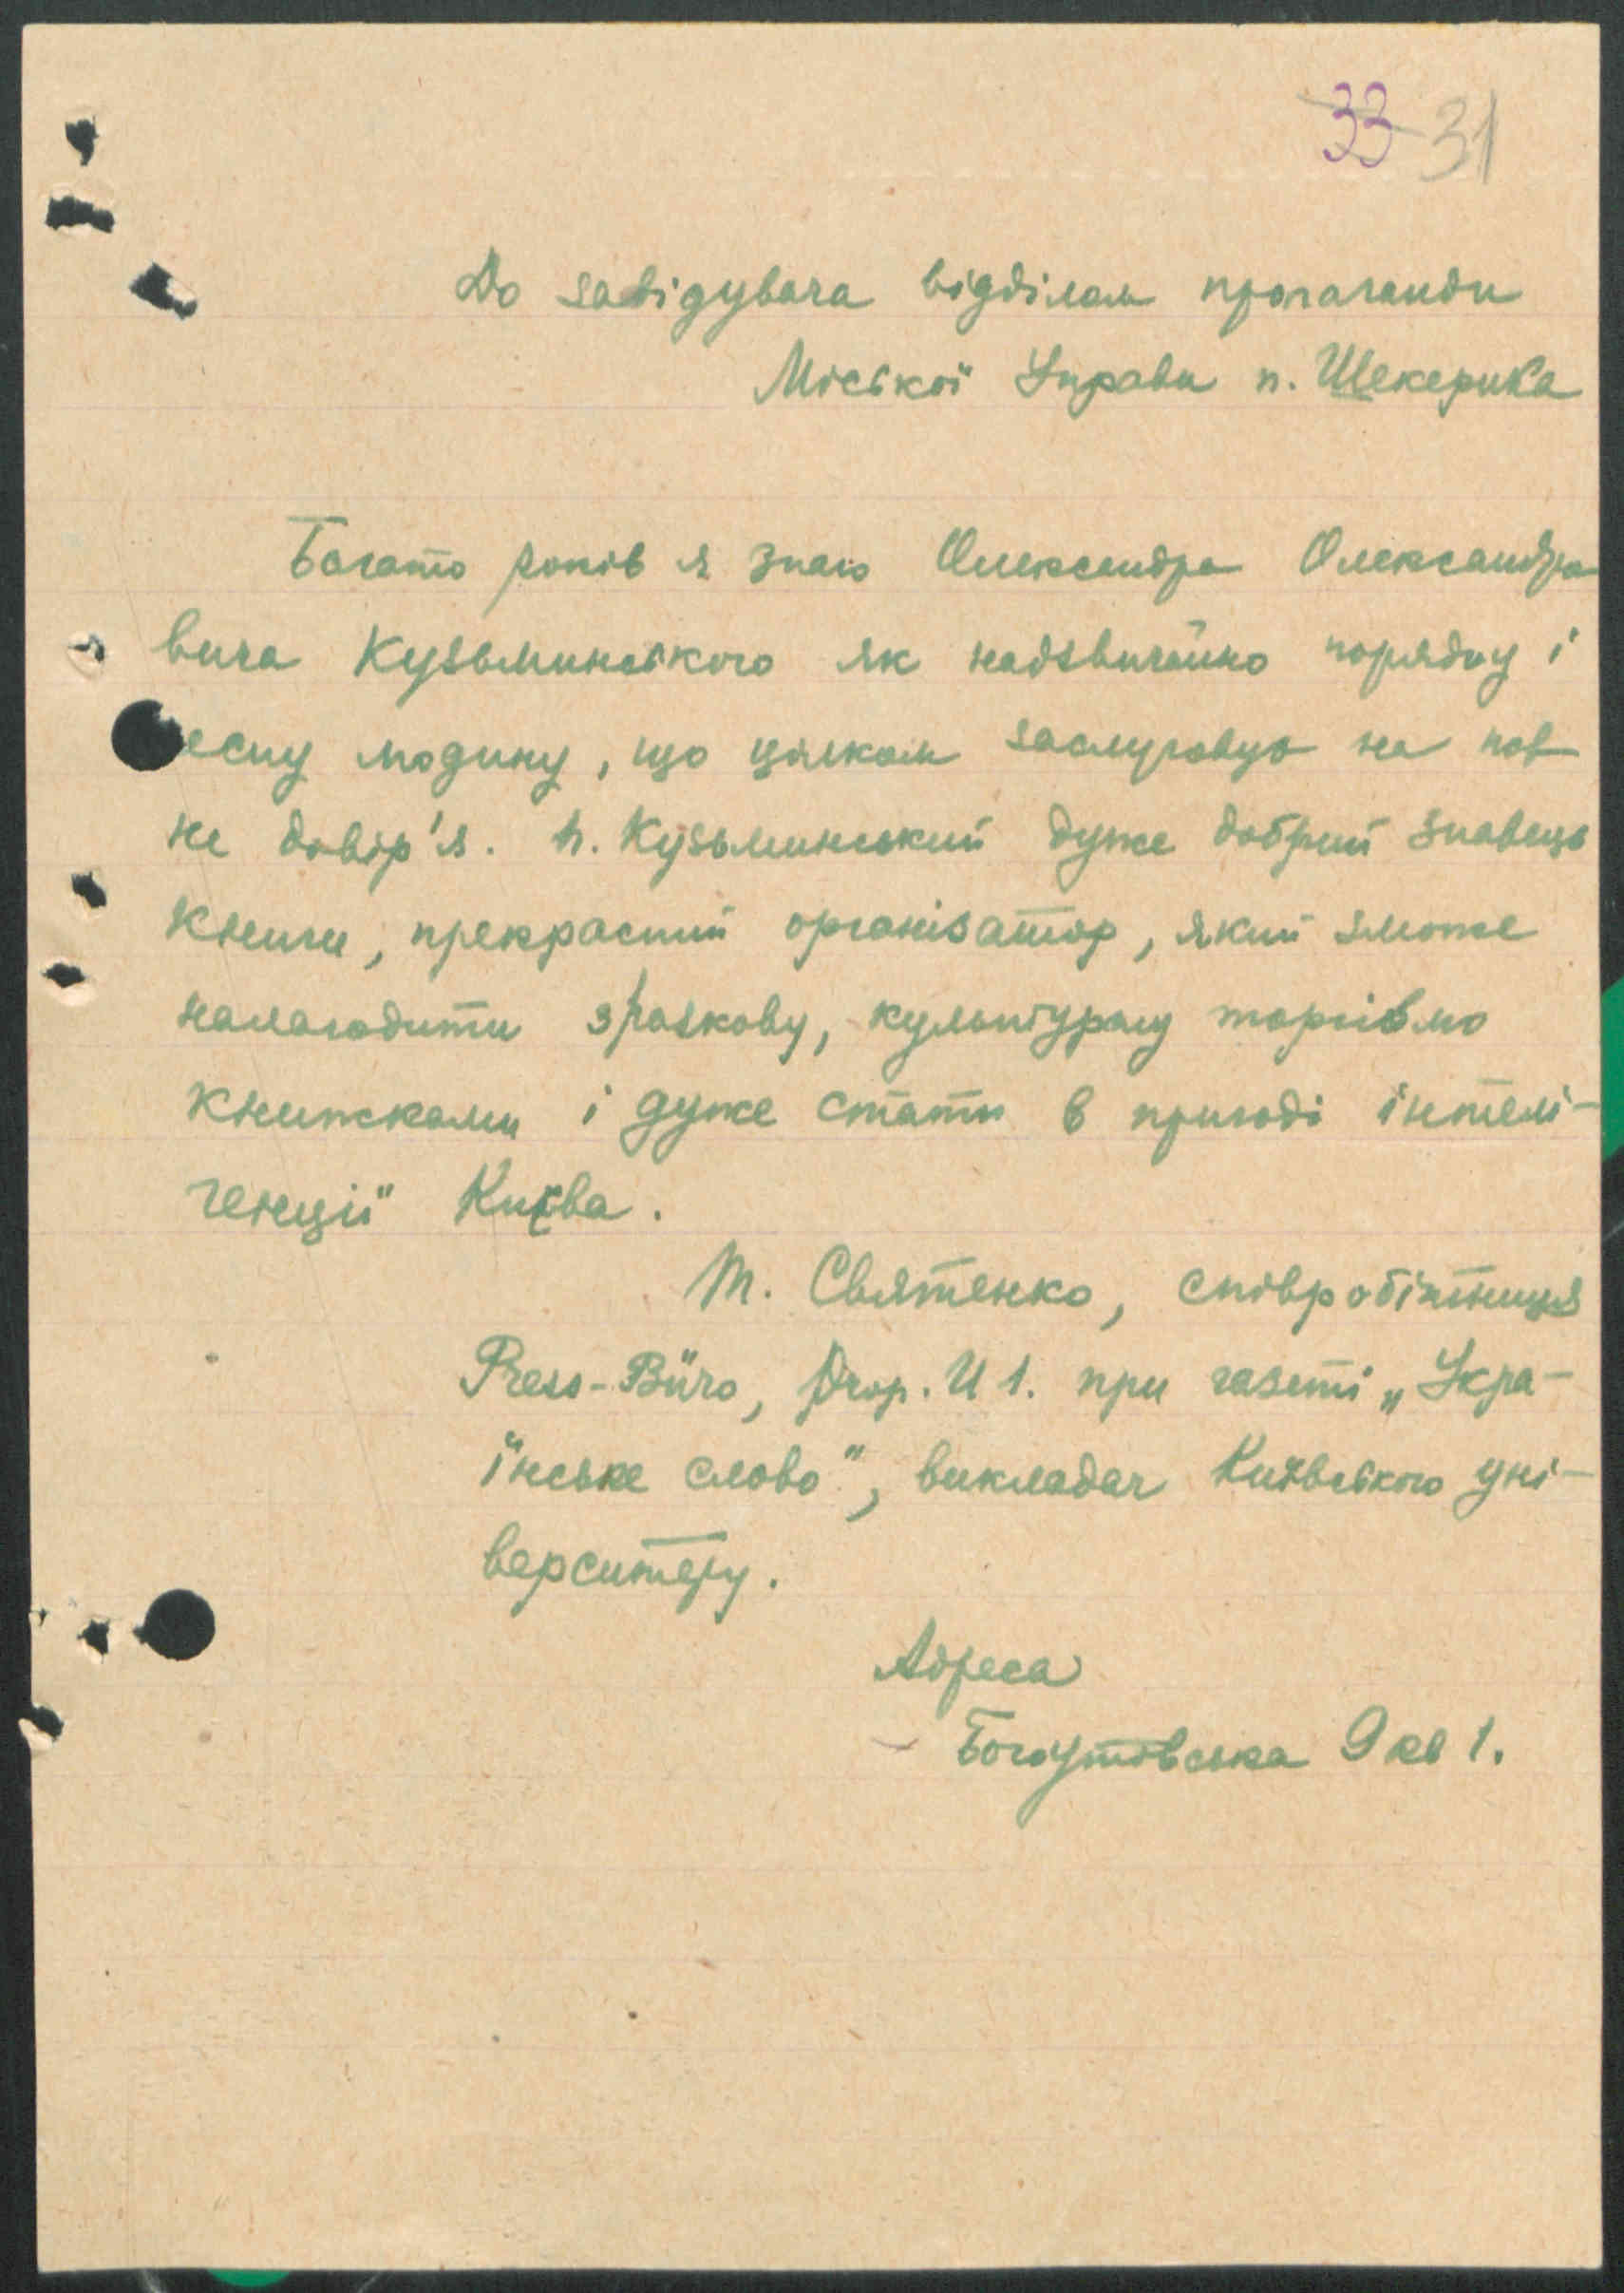 33 31
До завідувача відділом пропаганди
Міської Управи п. Шекерика
Багато років я знаю Олександра Олександро
вича Кузьминського як надзвичайно порядну і
чесну людину, що цілком заслуговує на пов
не довір'я. п. Кузьминський дуже добрий знавець
книги, прекрасний організатор, який зможе
налагодити зразкову, культурну торгівлю
книжками і дуже стати в пригоді інтелі-
генції Києва.
Т. Святенко, співробітниця
Press-Büro, Prop. U 1. при газеті „Укра-
їнське слово", викладач Київського уні-
верситету.
Адреса
Богоутовська 9 кв 1.